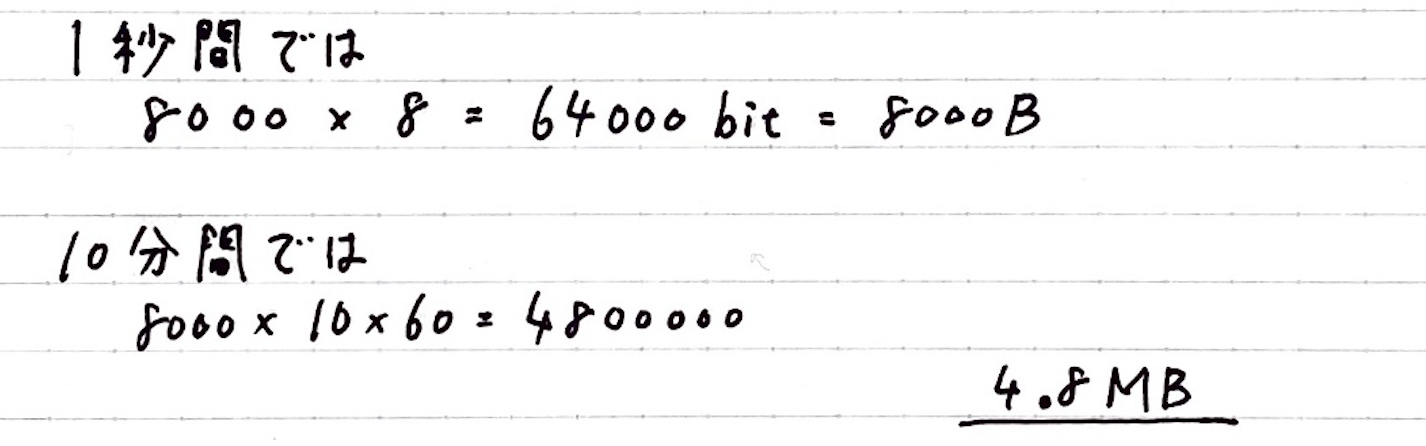 1秒間では
8000 × 8 = 64000 bit = 8000B
10分間では
8000 × 10 × 60 = 4800000
4.8MB